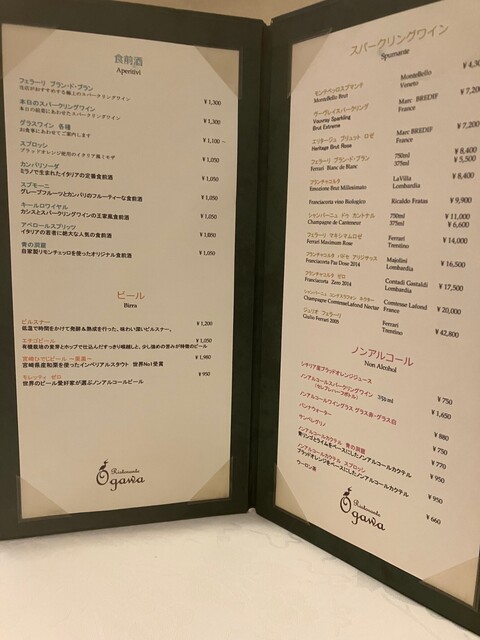 食前酒
Aperitivi
フェラーリ ブラン・ド・ブラン
当店がおすすめする極上のスパークリングワイン ¥1,300
本日のスパークリングワイン
本日の前菜にあわせたスパークリングワイン ¥1,300
グラスワイン 各種
お食事にあわせてご案内します ¥1,100～
スプロッシ
ブラッドオレンジ使用のイタリア風ミモザ ¥1,050
カンパリソーダ
ミラノで生まれたイタリアの定番食前酒 ¥1,050
スプモーニ
グレープフルーツとカンパリのフルーティーな食前酒 ¥1,050
キールロワイヤル
カシスとスパークリングワインの王室風食前酒 ¥1,050
アペロールスプリッツ
イタリアの若者に絶大な人気の食前酒 ¥1,050
青の洞窟
自家製リモンチェッロを使ったオリジナル食前酒 ¥1,050
ビール
Birra
ピルスナー
低温で時間をかけて発酵＆熟成を行った、味わい深いピルスナー。 ¥1,200
エチゴビール
有機栽培の麦芽とホップで仕込んだすっきり喉越しと、少し強めの苦みが特徴のビール ¥1,050
宮崎ひでじビール ～栗黒～
宮崎県産和栗を使ったインペリアルスタウト 世界No1受賞 ¥1,980
モレッティ ゼロ
世界のビール愛好家が選ぶノンアルコールビール ¥950
Ristorante
Ogawa
スパークリングワイン
Spumante
モンテベッロスプマンテ
MonteBello Brut MonteBello Veneto
ヴーヴレイスパークリング
Vouvray Sparkling Brut Extreme Marc BREDIF France ¥7,200
エリタージュ ブリュット ロゼ
Heritage Brut Rose Marc BREDIF France ¥7,200
フェラーリ ブラン・ド・ブラン 750ml ¥8,400
Ferrari Blanc de Blanc 375ml ¥5,500
フランチャコルタ
Emozione Brut Millesimato LaVilla Lombardia ¥8,400
Franciacorta vino Biologico Ricaldo Fratas ¥9,900
シャンパーニュ ドゥ カントナル 750ml ¥11,000
Champagne de Canteneur 375ml ¥6,600
フェラーリ マキシマムロゼ
Ferrari Maximum Rose Ferrari Trentino ¥14,000
フランチャコルタ パドセ アリジャッス
Franciacorta Pas Dose 2014 Majolini Lombardia ¥16,500
フランチャコルタ ゼロ
Franciacorta Zero 2014 Contadi Gastaldi Lombardia ¥17,500
Champagne Comtesse Lafond Nectar Comtesse Lafond France ¥20,000
ジュリオ フェラーリ
Giulio Ferrari 2005 Ferrari Trentino ¥42,800
ノンアルコール
Non Alcohol
シチリア産ブラッドオレンジジュース ¥750
ノンアルコールスパークリングワイン
¥1,650
ノンアルコールワイングラス グラス赤・グラス白 ¥880
パンナウォーター ¥750
サンペレグリノ ¥770
ノンアルコールカクテル 青の洞窟
青リンゴとライムをベースにしたノンアルコールカクテル ¥950
ノンアルコールカクテル スプロッシ
ブラッドオレンジをベースにしたノンアルコールカクテル ¥950
ウーロン茶 ¥660
Ristorante
Ogawa